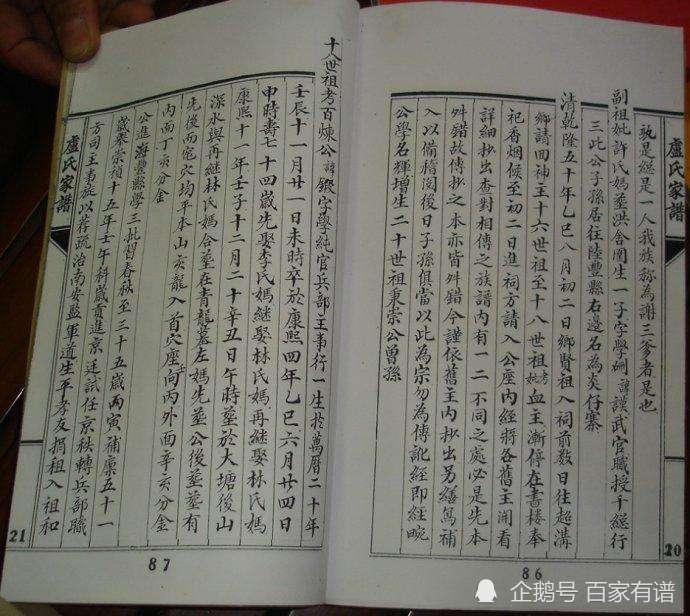 盧氏家譜
孰是継是一人我族称為謝三爹者是也
副祖妣許氏媽塟洪舍圍生一子字學 諱謨武官職授千緫行
三此公子孫居往陸豐縣右邊名為炎仔寨
清乾隆五十年乙巳八月初二日鄉賢祖入祠前数日往起溝
鄉請回神主十六世祖至十八世祖考妣血主漸停在書楼奉
祀香烟候至初二日進祠方請入公座内經將各舊主開看
詳細抄出查對相傳之族譜内有一二不同之處必是先本
舛錯故傳抄之本亦皆舛錯今謹依舊主内抄出另繕篤補
入以備稽閱後日子孫俱當以此為宗勿為傳訛經即經畹
公學名輝增生二十世祖秉崇公曽孫
20
86
十八世祖考百煉公諱鏗字學純官兵部主事行一生於萬曆二十年
壬辰十一月廿一日未時卒於康熙四年乙巳六月廿四日
申時壽七十四歲先娶李氏媽継娶林氏媽再継娶林氏媽
康熙十一年壬子十二月二十辛丑日午時塟於大塘後山
深水與再継林氏媽合塟在青龍墓左媽先塟公後塟塟有
先後而窀穴均平本山亥龍入首穴座向内外面辛亥分金
内向丁亥分金
公進海豐縣學三批習春秋至三十五歲丙寅補廪五十一
歲奉崇禎十五年壬午科歲貢進京廷試任京秩轉兵部職
方司主事旋以荐疏治南安監軍道生平孝友捐租入祖和
盧氏家譜
21
87
企鹅号 百家有谱